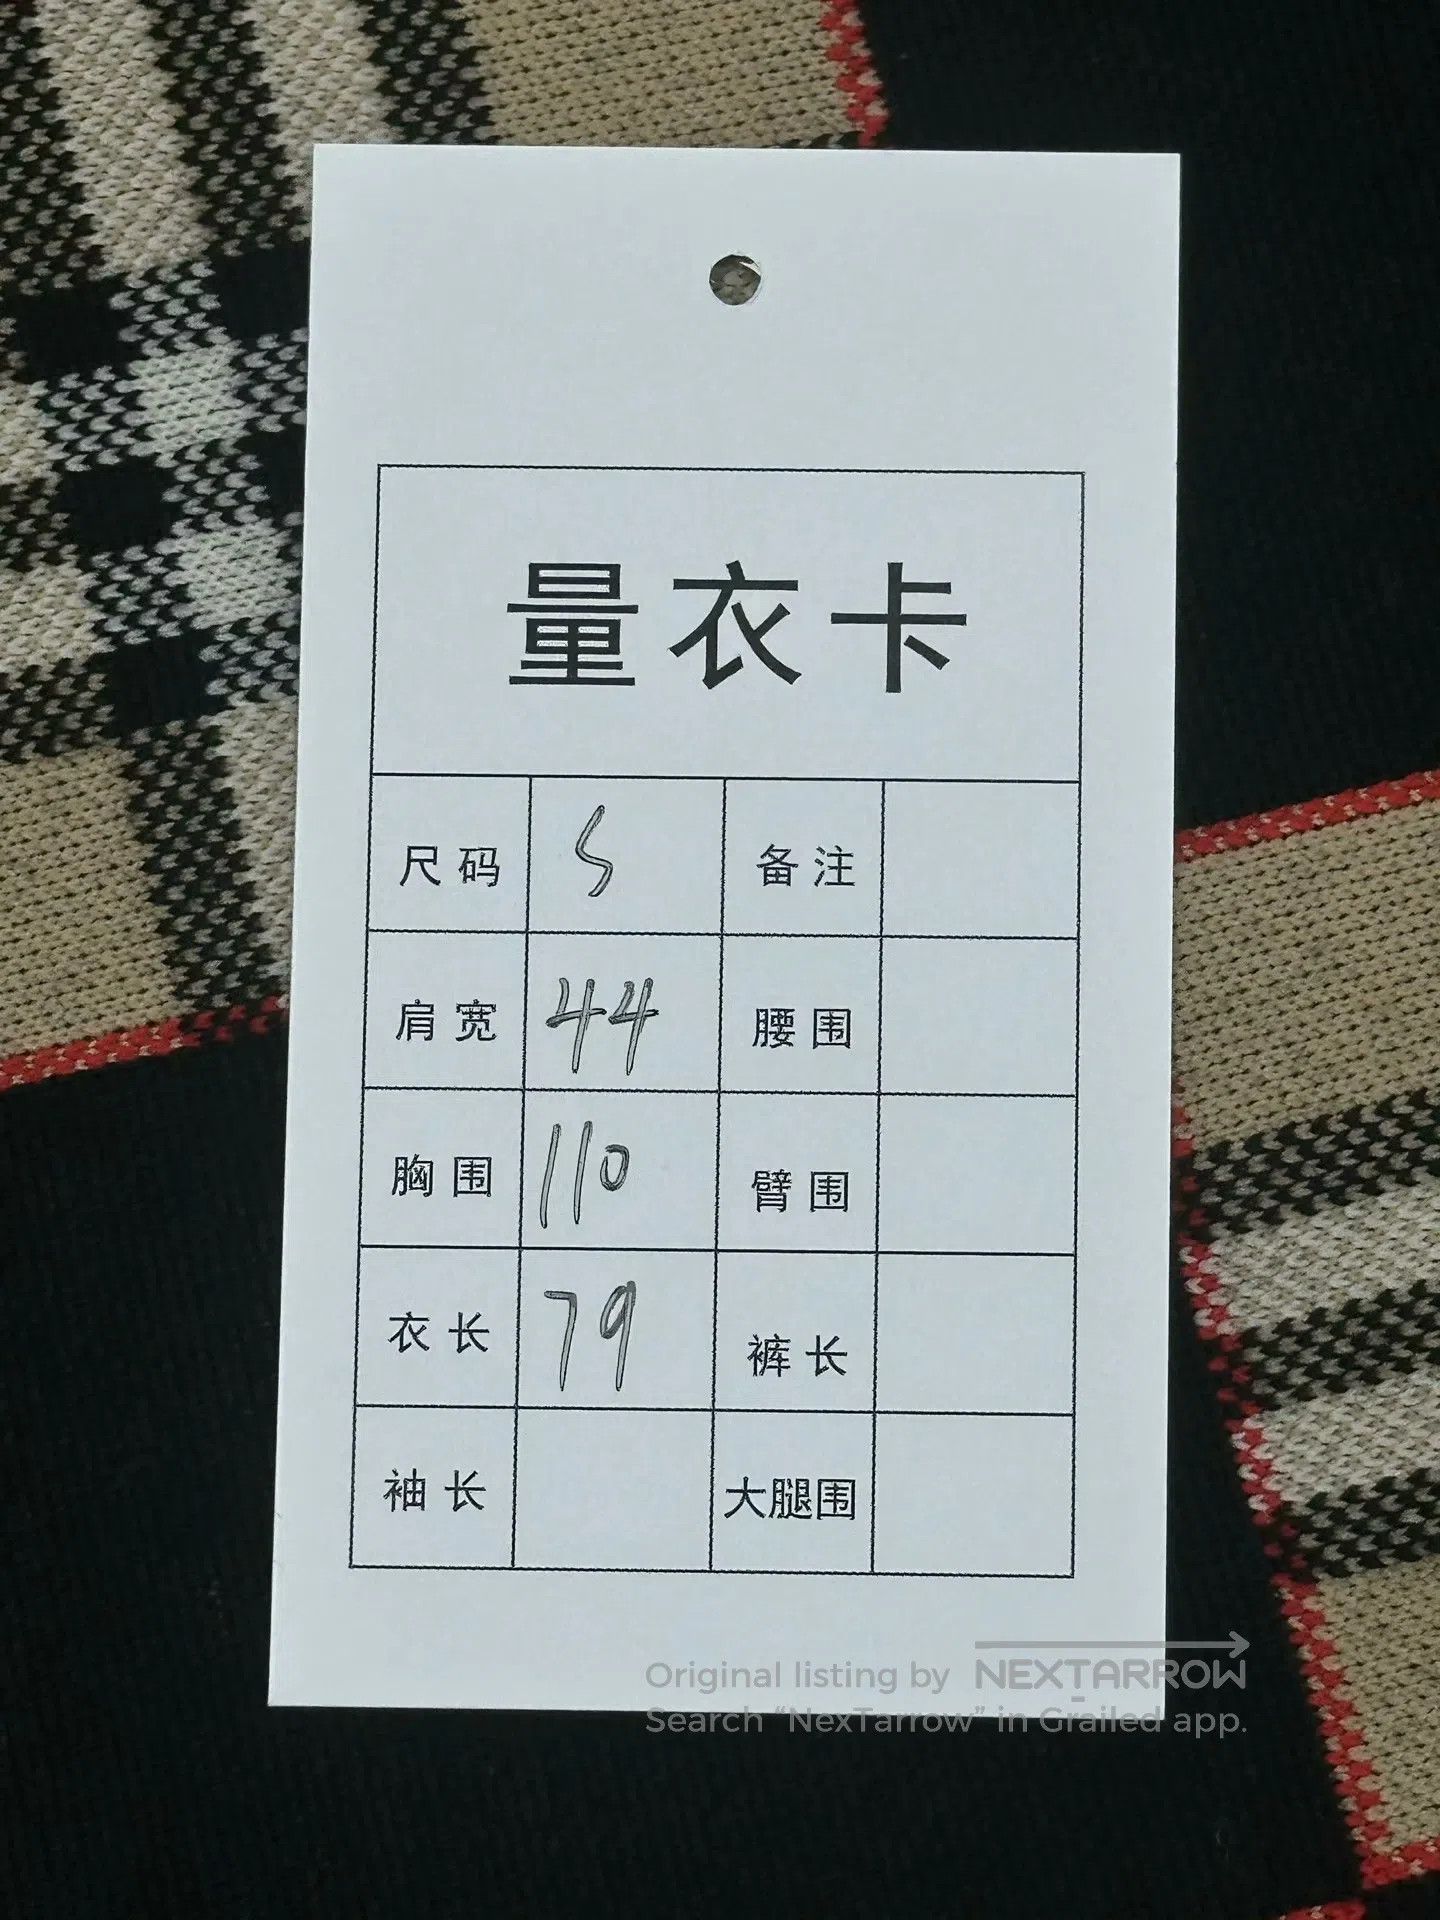 量衣卡
尺码 S 备注
肩宽 44 腰围
胸围 110 臂围
衣长 79 裤长
袖长 大腿围
Original listing by NEXTARROW
Search “NexTarrow” in Grailed app.